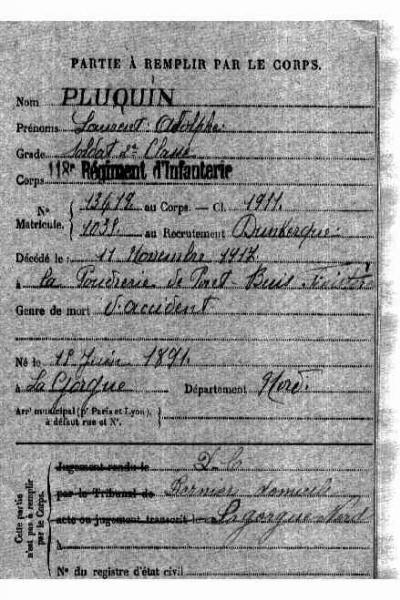 PARTIE À REMPLIR PAR LE CORPS.
Nom PLUQUIN
Prénoms Laurent Adolphe
Grade Soldat 2e Classe
Corps 118e Régiment d'Infanterie
N° Matricule. { 13612 au Corps. — Cl. 1911.
1038 au Recrutement Dunkerque
Décédé le 11 Novembre 1917
à La Poudrerie de Pont-Buis Finistère
Genre de mort d'accident
Né le 18 Juin 1891.
à La Gorgue Département Nord.
Arrt municipal (pr Paris et Lyon), } à défaut rue et N°.
Cette partie n'est pas à remplir par le Corps.
Jugement rendu le D. C.
par le Tribunal de Dernier domicile
acte ou jugement transcrit le Lagorgue Nord
à
N° du registre d'état civil